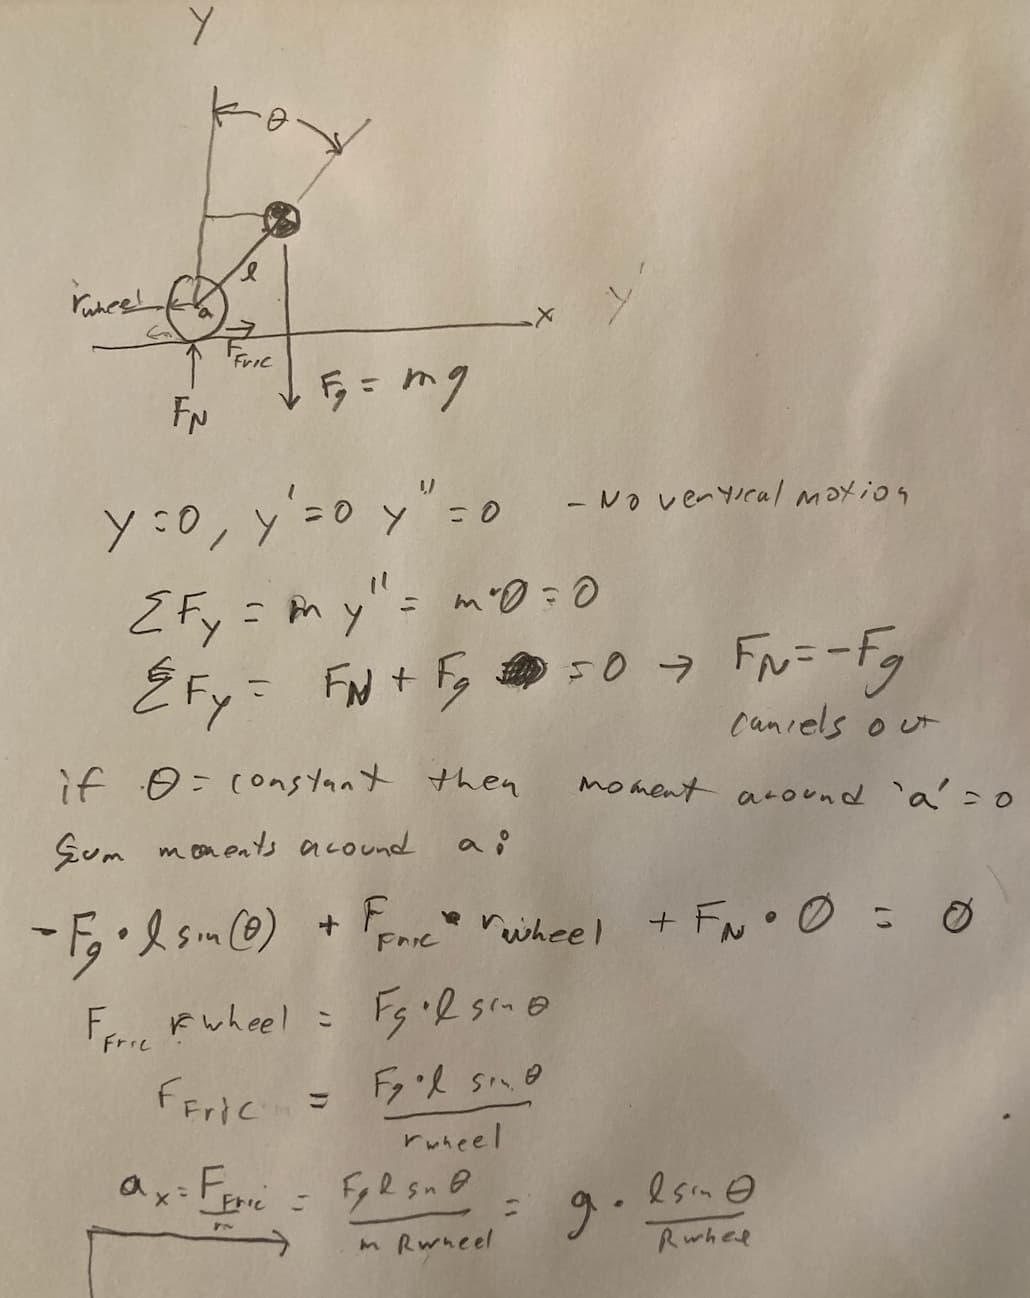 Y
θ
l
rwheel
a
x
y'
FFric
Fg = mg
FN
y=0, y'=0 y''=0 - No vertical motion
ΣFy = my'' = m·0 = 0
ΣFy = FN + Fg = 0 → FN = -Fg
cancels out
if θ = constant then moment around 'a' = 0
Sum moments around a:
-Fg·l sin(θ) + FFric·rwheel + FN·0 = 0
FFric rwheel = Fg·l sin θ
FFric = Fg·l sin θ / rwheel
ax = FFric / m = Fg l sin θ / m Rwheel = g · l sin θ / Rwheel